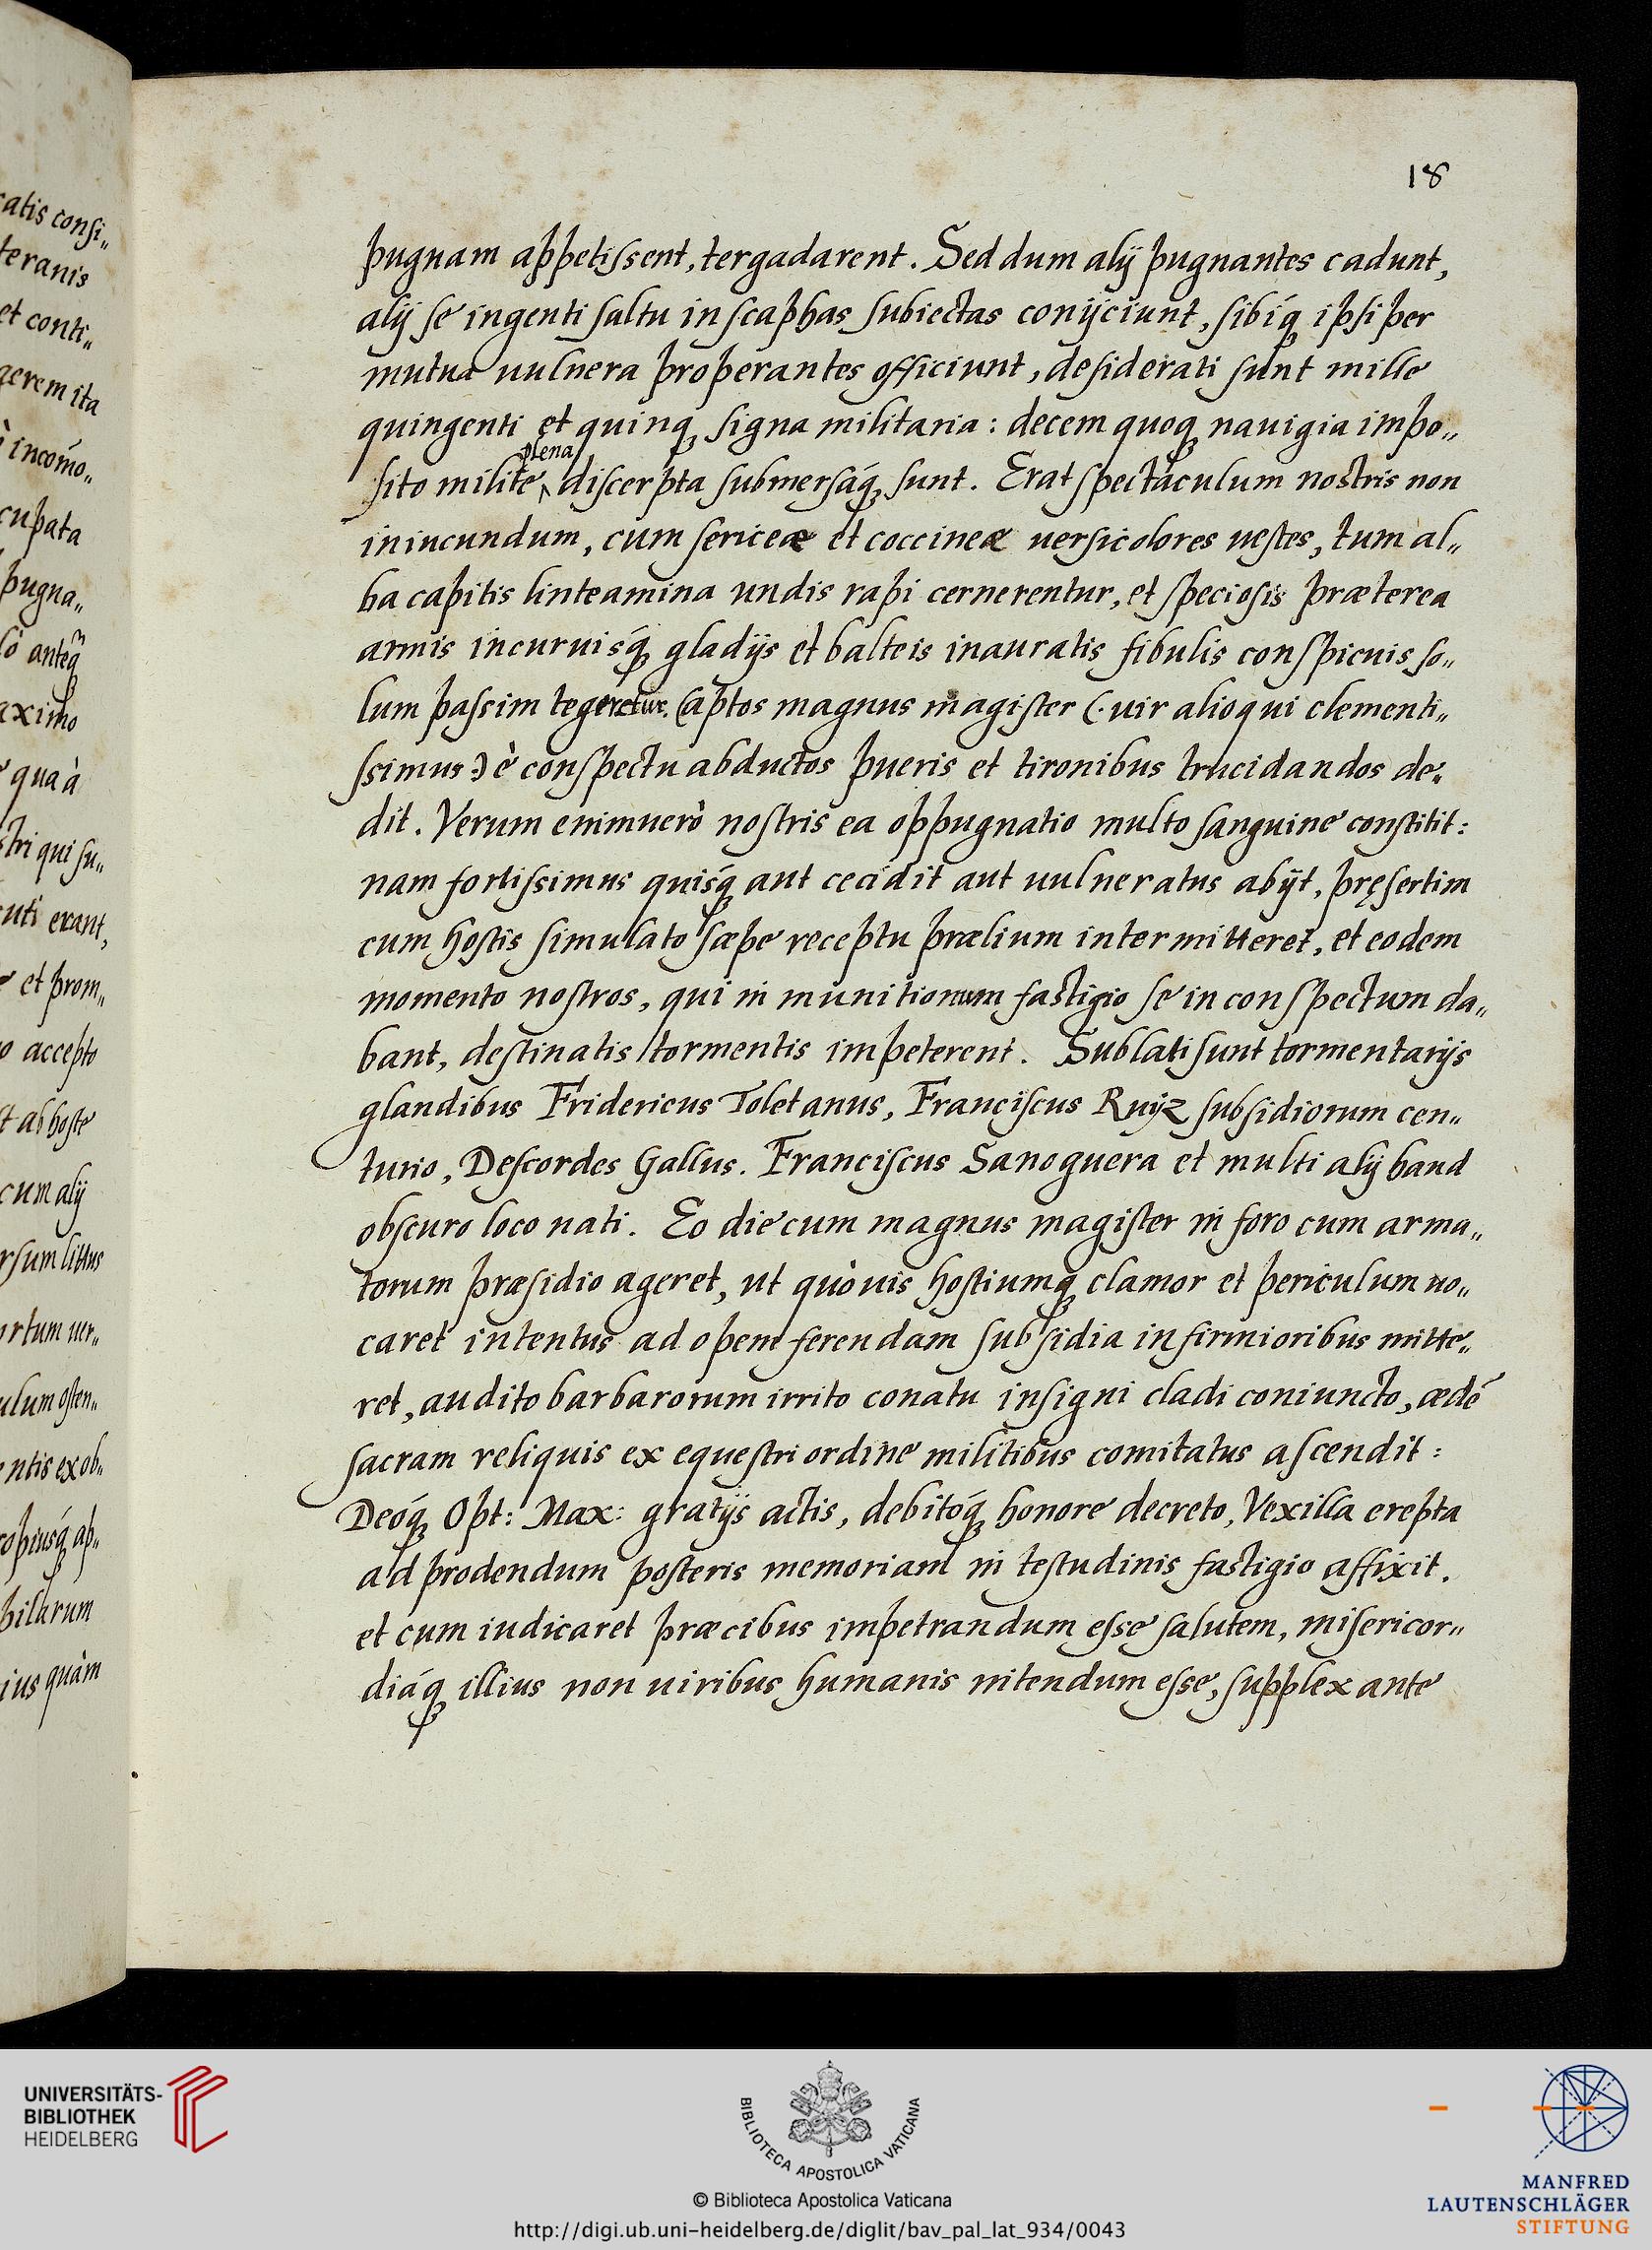 18
pugnam appetissent, terga darent. Sed dum alij pugnantes cadunt,
alij se ingenti saltu in scaphas subiectas conijciunt, sibíq; ipsi per
mutua uulnera properantes officiunt, desiderati sunt mille
quingenti et quinq; signa militaria: decem quoq; nauigia impo„
plena
sito milite ‸ discerpta submersáq; sunt. Erat spectaculum nostris non
iniucundum, cum sericeæ et coccineæ uersicolores uestes, tum al„
ba capitis linteamina undis rapi cernerentur, et speciosis præterea
armis incuruisq́; gladijs et balteis inauratis fibulis conspicuis so„
lum passim tegeretur. Captos magnus magister (·uir alioqui clementi„
ssimus·) è conspectu abductos pueris et tironibus trucidandos de„
dit. Verum enimuerò nostris ea oppugnatio multo sanguine constitit:
nam fortissimus quisq́; aut cecidit aut uulneratus abijt, pręsertim
cum hostis simulato sæpe receptu prælium intermitteret, et eodem
momento nostros, qui in munitionum fastigio se in conspectum da„
bant, destinatis tormentis impeterent. Sublati sunt tormentarijs
glandibus Fridericus Toletanus, Franciscus Ruijz subsidiorum cen„
turio, Descordes Gallus. Franciscus Sanoguera et multi alij haud
obscuro loco nati. Eo die cum magnus magister in foro cum arma„
torum præsidio ageret, ut quòuis hostiumq; clamor et periculum uo„
caret intentus ad opem ferendam subsidia infirmioribus mitte„
ret, audito barbarorum irrito conatu insigni cladi coniuncto, ædē
sacram reliquis ex equestri ordine militibus comitatus ascendit:
Deóq; Opt: Max: gratijs actis, debitóq; honore decreto, Vexilla erepta
ad prodendum posteris memoriam in testudinis fastigio affixit.
et cum iudicaret præcibus impetrandum esse salutem, misericor„
diáq; illius non uiribus humanis nitendum esse, supplex ante
atis consi„
teranis
et conti„
gerem ita
incom̄o„
cupata
pugna„
anteq̃
aximo
qua à
stri qui su„
uti erant,
et prom„
o accepto
ab hoste
cum alij
rsum littus
ortum uer„
ulum osten„
entis ex ob„
opiusq́; ap„
pilarum
ius quàm
UNIVERSITÄTS-
BIBLIOTHEK
HEIDELBERG
BIBLIOTECA APOSTOLICA VATICANA
© Biblioteca Apostolica Vaticana
http://digi.ub.uni-heidelberg.de/diglit/bav_pal_lat_934/0043
MANFRED
LAUTENSCHLÄGER
STIFTUNG